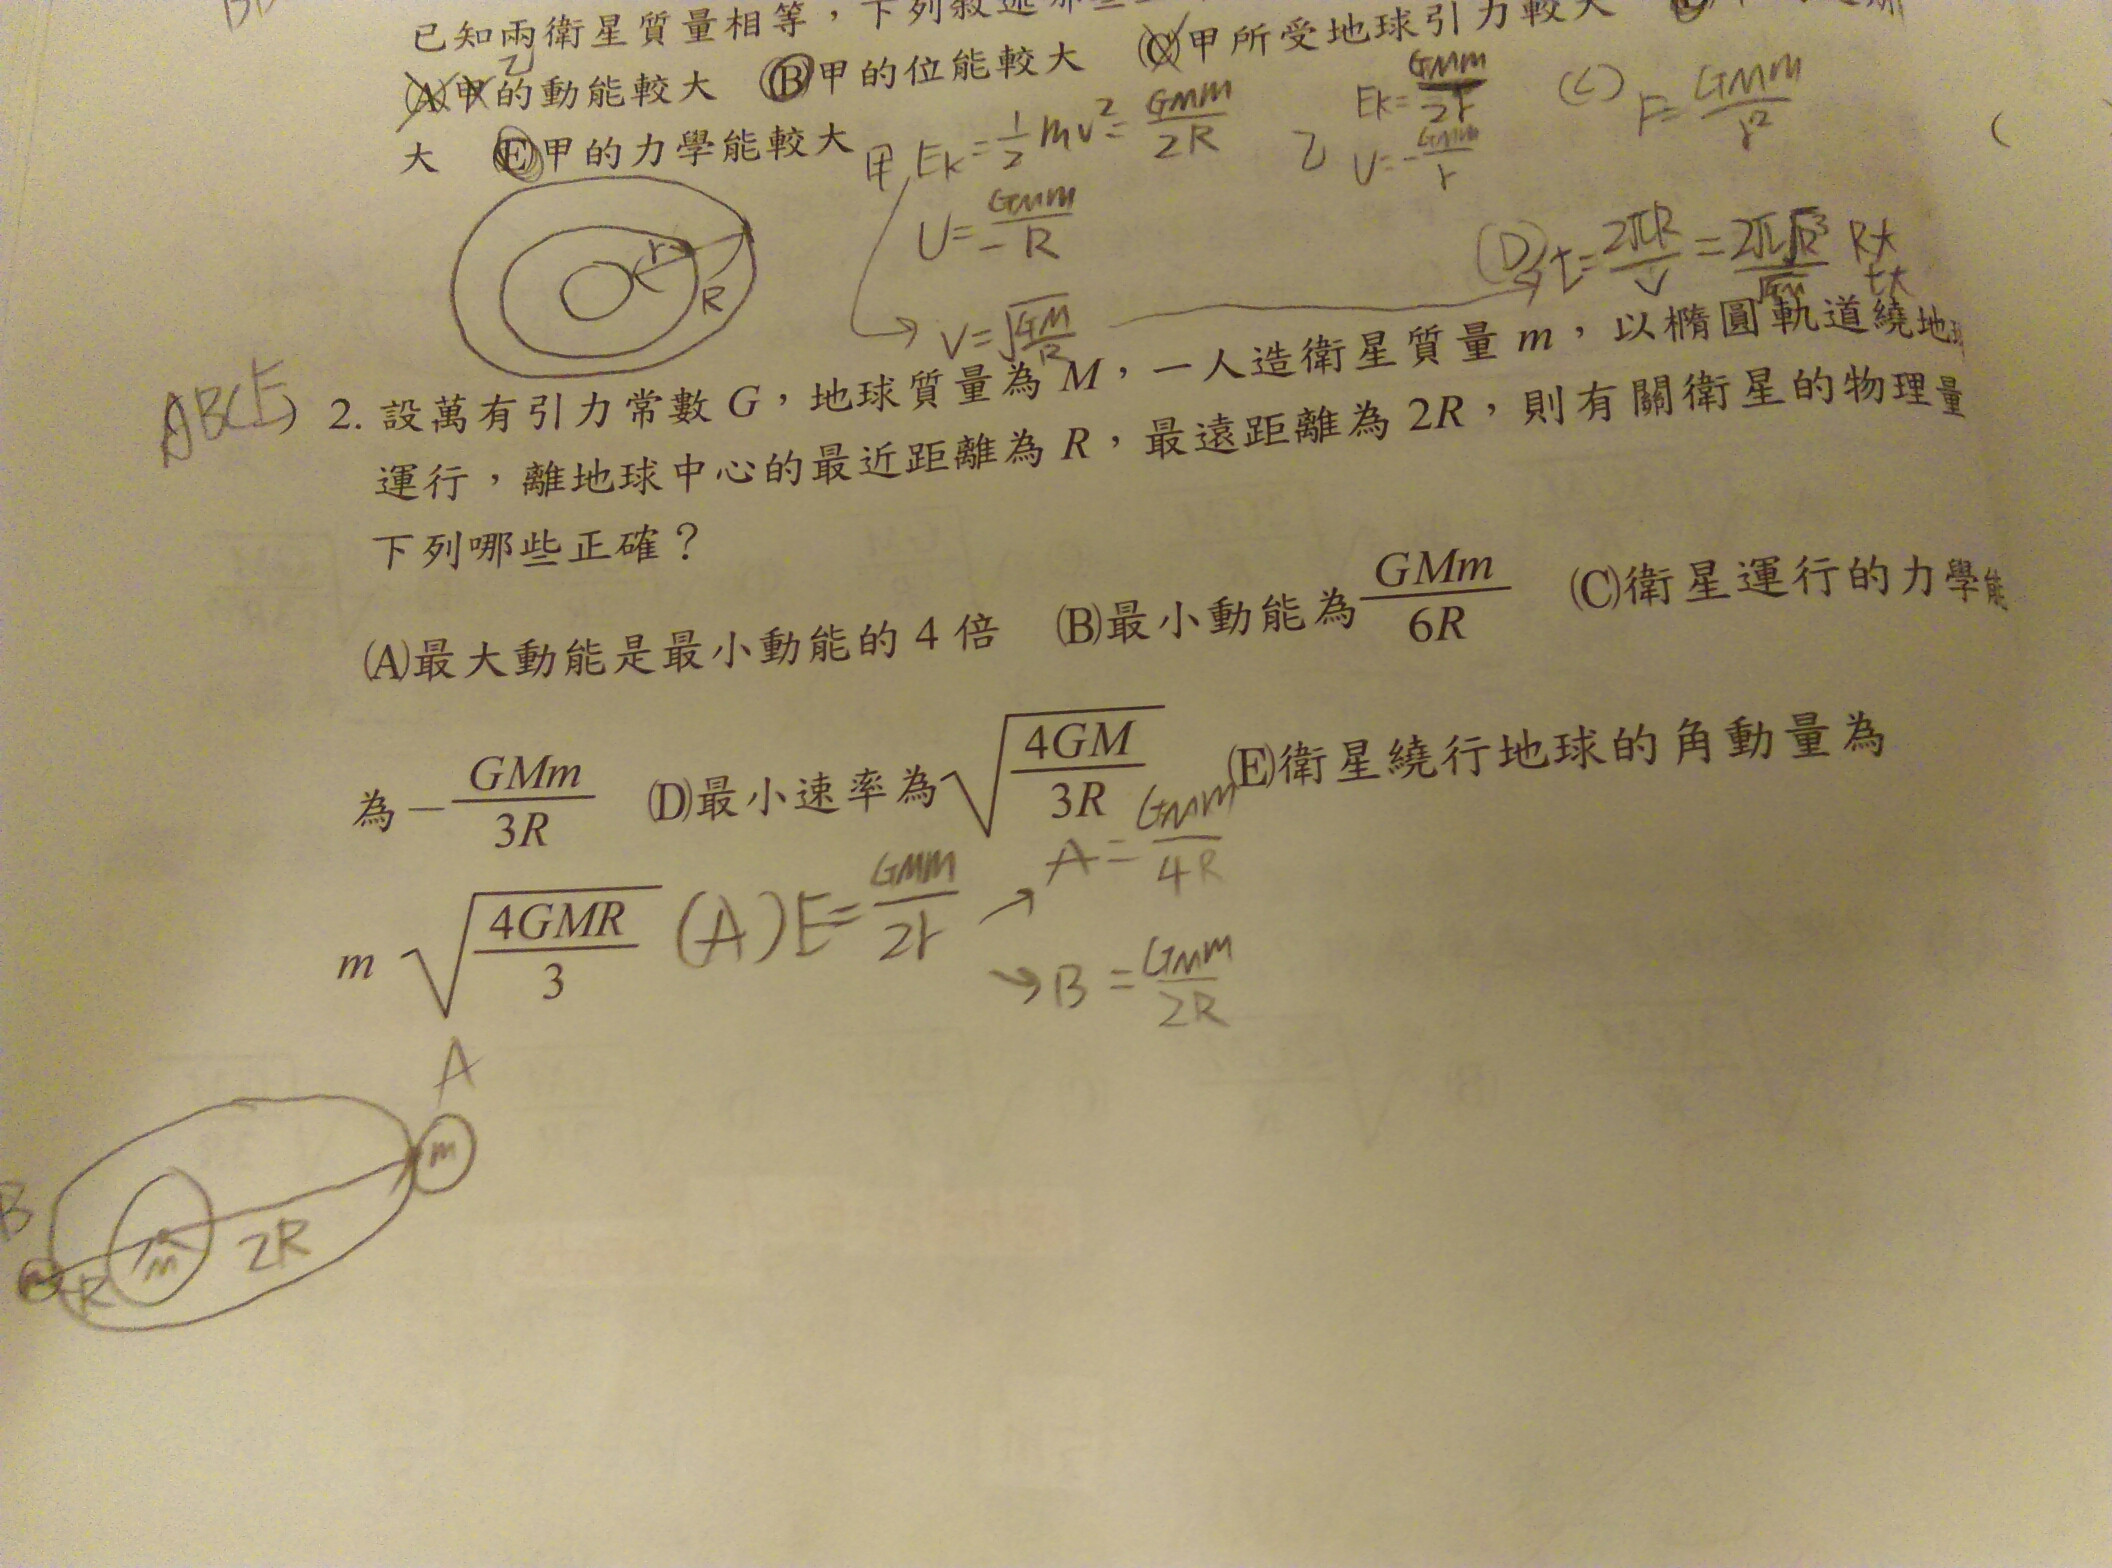 已知兩衛星質量相等，下列敘述那些
乙
(A)甲的動能較大 (B)甲的位能較大 (C)甲所受地球引力較大
大 (E)甲的力學能較大
甲 Ek=1/2 mv²=GMm/2R
U=-GMm/R
V=√(GM/R)
乙 Ek=GMm/2r
U=-GMm/r
(C) F=GMm/r²
(D) t=2πR/v=2π√R³/√GM R大
t大
r
R
ABCE) 2. 設萬有引力常數 G，地球質量為 M，一人造衛星質量 m，以橢圓軌道繞地球
運行，離地球中心的最近距離為 R，最遠距離為 2R，則有關衛星的物理量
下列哪些正確？
(A)最大動能是最小動能的 4 倍 (B)最小動能為 GMm/6R (C)衛星運行的力學能
為 -GMm/3R (D)最小速率為 √(4GM/3R) (E)衛星繞行地球的角動量為
m √(4GMR/3)
(A) E=GMm/2r → A=GMm/4R
→ B=GMm/2R
A
m
B
R
M
2R